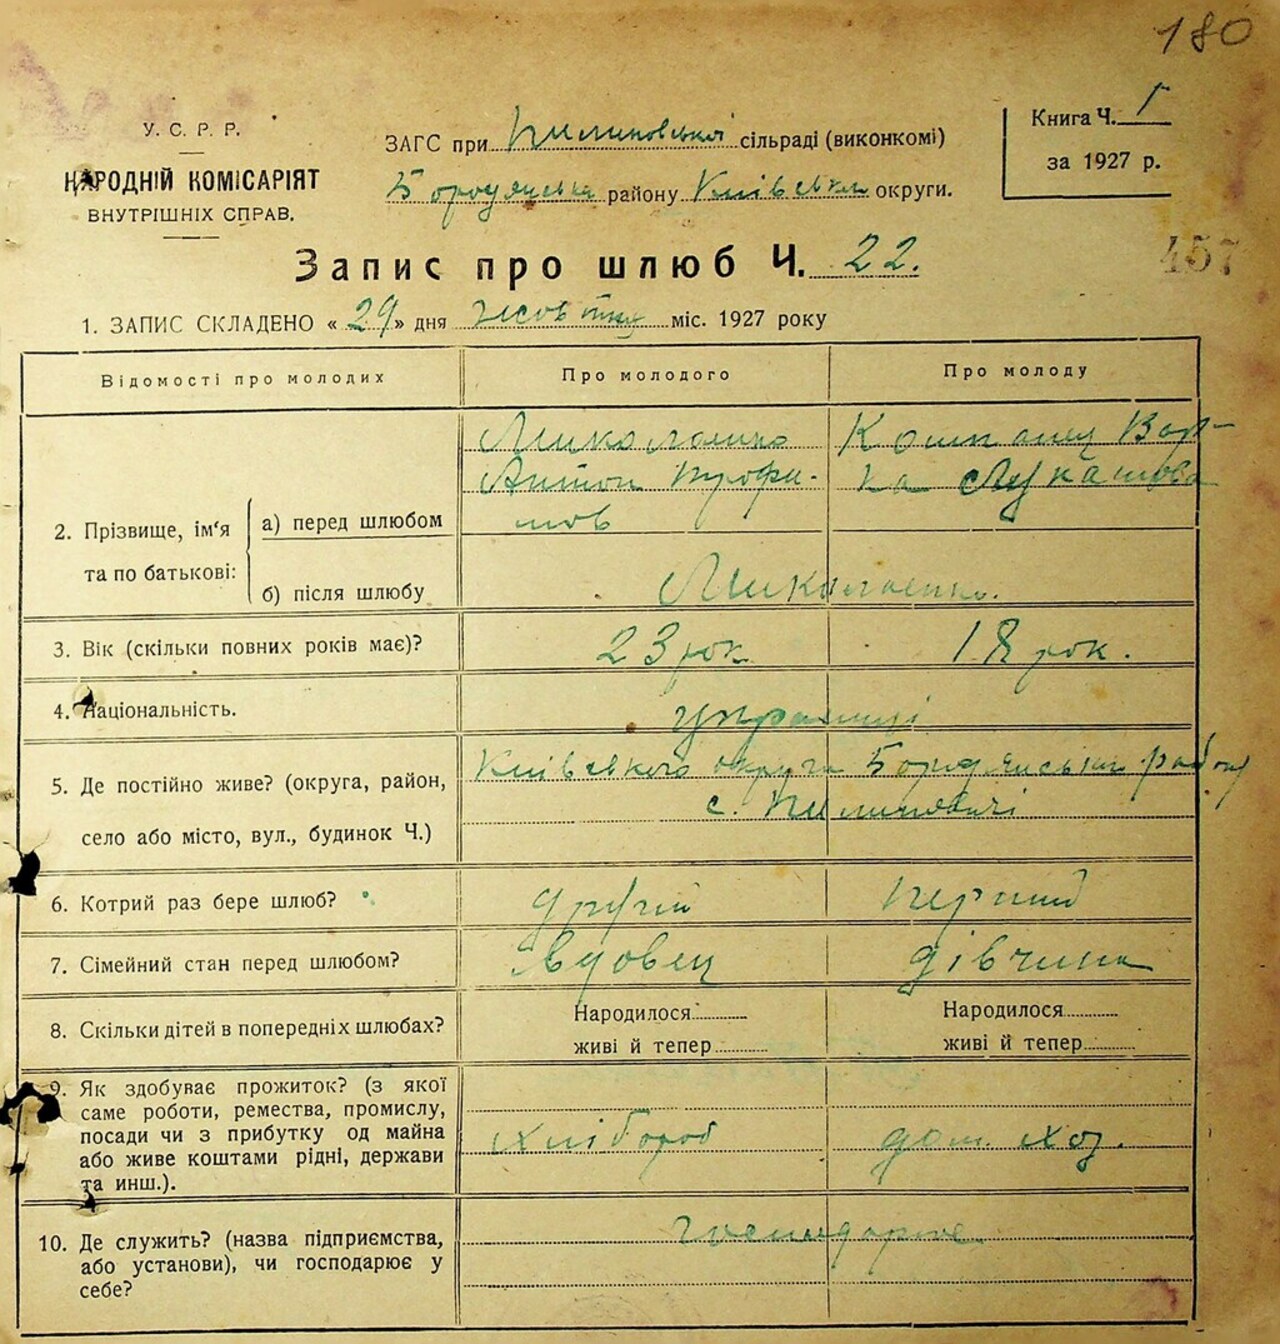 180
У. С. Р. Р.
НАРОДНІЙ КОМІСАРІЯТ
ВНУТРІШНІХ СПРАВ.
ЗАГС при Пилиповської сільраді (виконкомі)
Бородянська району Київськи округи.
Книга Ч. 1
за 1927 р.
457
Запис про шлюб Ч. 22.
1. ЗАПИС СКЛАДЕНО « 29 » дня жовтня міс. 1927 року
Відомості про молодих
Про молодого
Про молоду
2. Прізвище, ім'я та по батькові:
а) перед шлюбом
Миколаєнко
Антон Трофи-
мов
Компанец Вар-
ка Лукашова
б) після шлюбу
Миколаенко.
3. Вік (скільки повних років має)?
23 рок
18 рок.
4. Національність.
українці
5. Де постійно живе? (округа, район,
село або місто, вул., будинок Ч.)
Київського округи Бородянськи району
с. Пилиповичі
6. Котрий раз бере шлюб?
другій
перший
7. Сімейний стан перед шлюбом?
вдовец
дівчина
8. Скільки дітей в попередніх шлюбах?
Народилося
живі й тепер
Народилося
живі й тепер
9. Як здобуває прожиток? (з якої
саме роботи, ремества, промислу,
посади чи з прибутку од майна
або живе коштами рідні, держави
та инш.).
хлібороб
дом. хоз.
10. Де служить? (назва підприємства,
або установи), чи господарює у
себе?
господарює